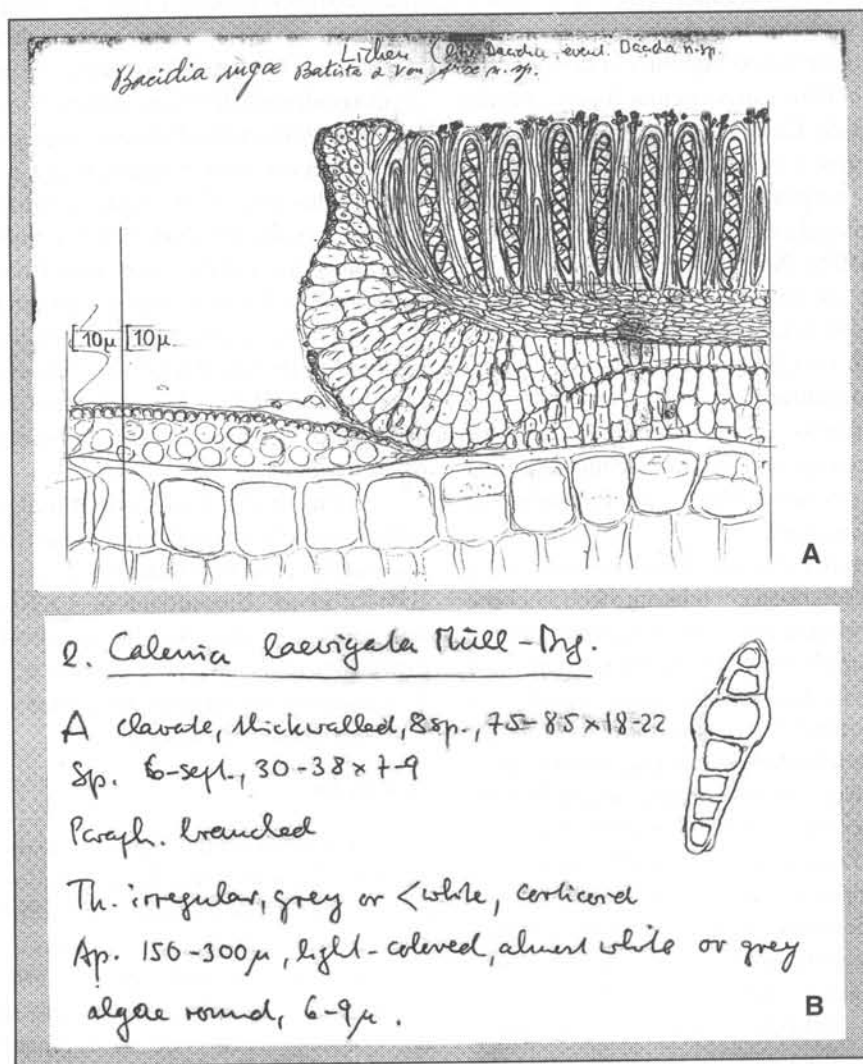 Lichen
Bacidia ingae Batista & n. sp.
[10μ [10μ
A
2. Calenia laevigata Müll-Arg.
A clavate, thickwalled, 8sp., 75-85×18-22
Sp. 6-sept., 30-38×7-9
Paraph. branched
Th. irregular, grey or <white, corticoid
Ap. 150-300μ, light-colored, almost white or grey
algae round, 6-9μ.
B